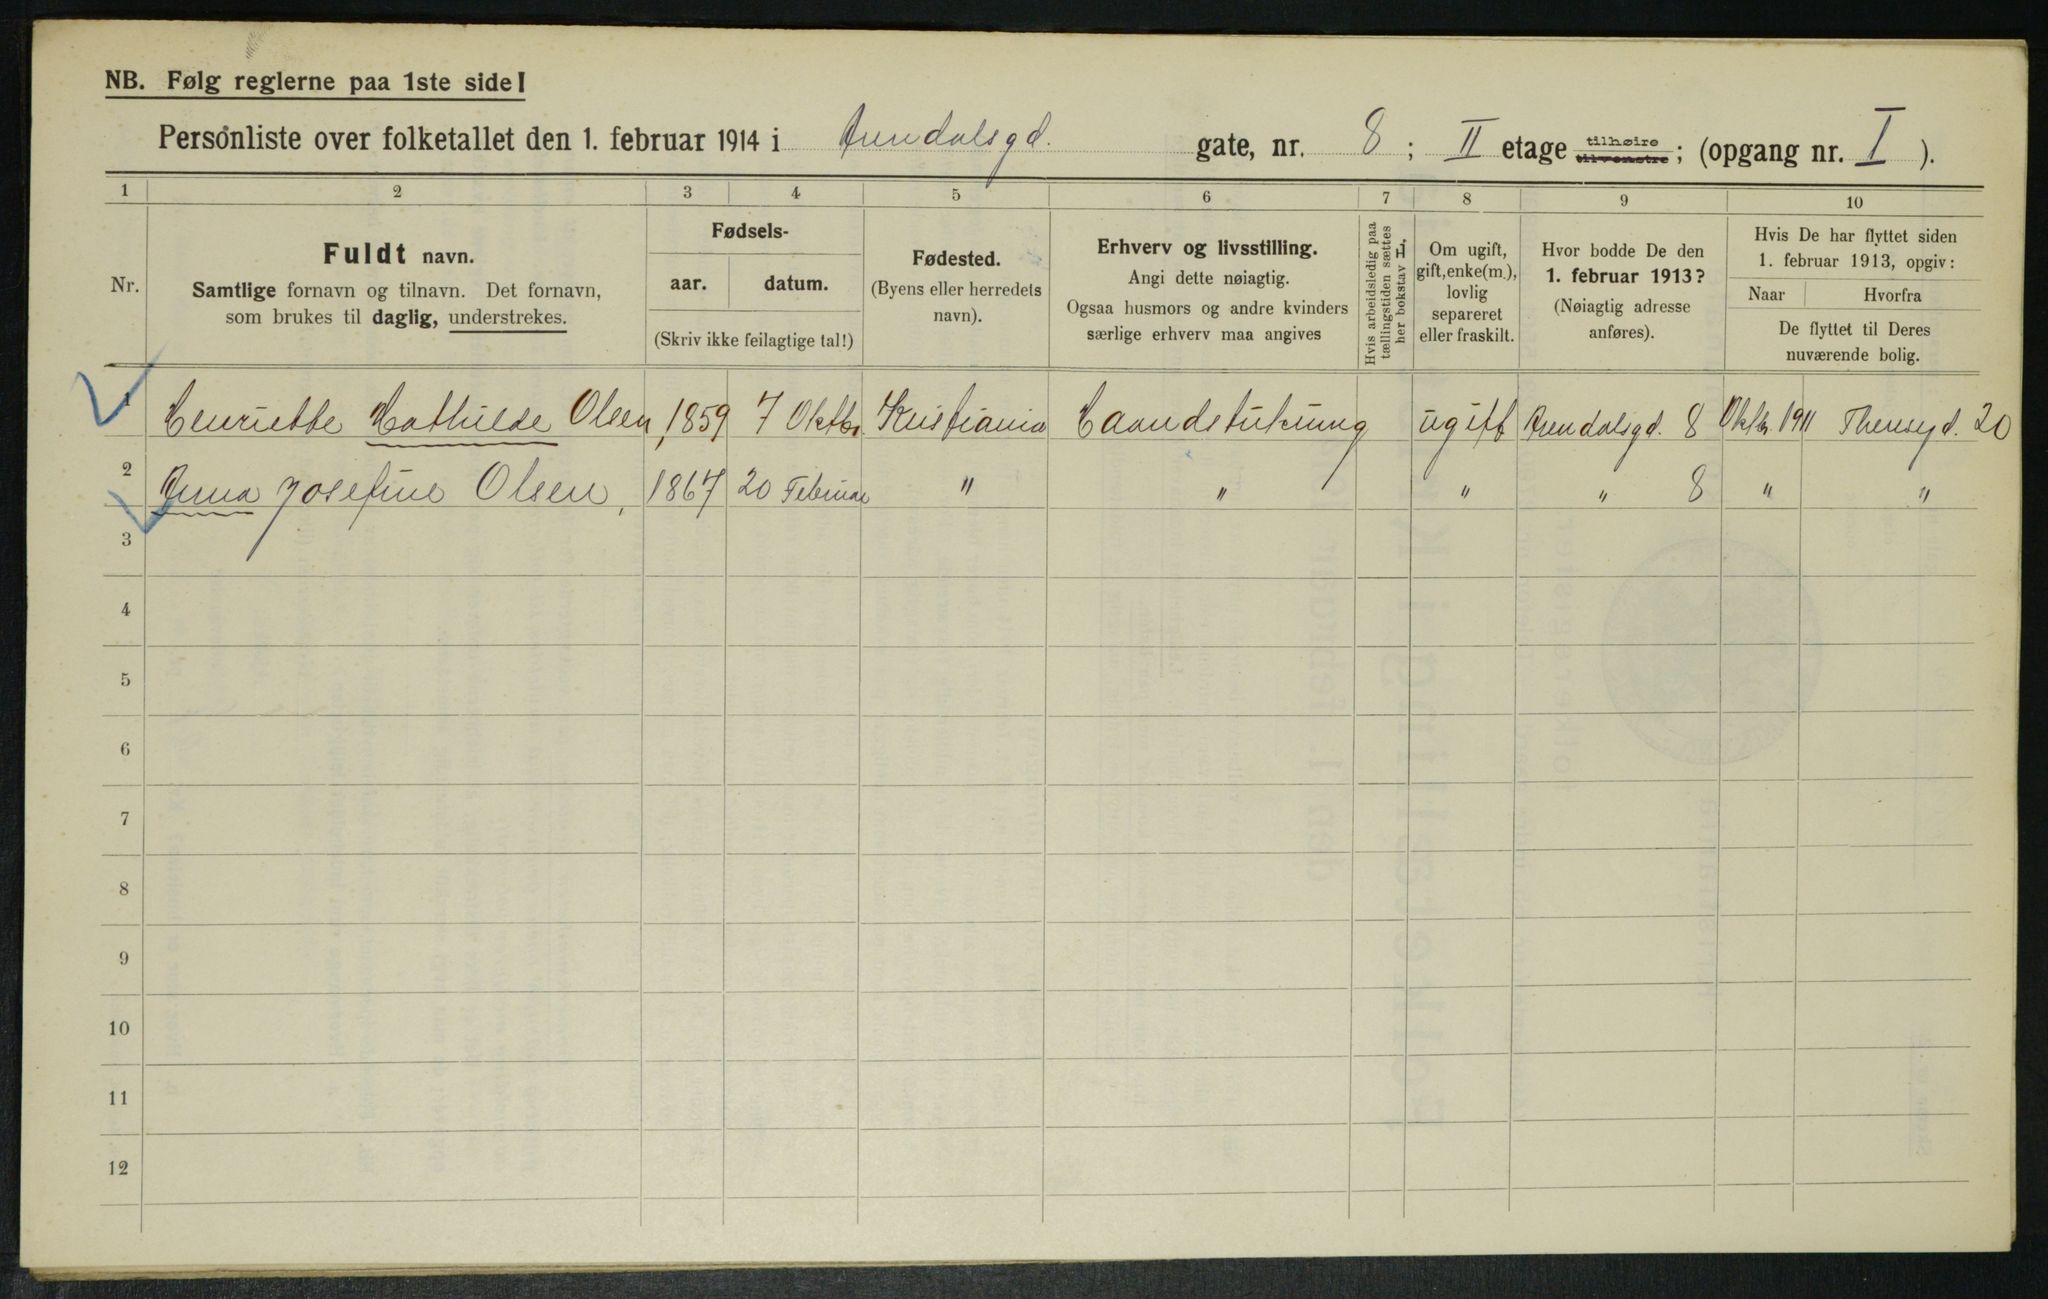 NB. Følg reglerne paa 1ste side!
Personliste over folketallet den 1. februar 1914 i Arendalsgd. gate, nr. 8 ; II etage tilhøire tilvenstre ; (opgang nr. I ).
1 2 3 4 5 6 7 8 9 10
Nr.
Fuldt navn.
Samtlige fornavn og tilnavn. Det fornavn,
som brukes til daglig, understrekes.
Fødsels-
aar. datum.
(Skriv ikke feilagtige tal!)
Fødested.
(Byens eller herredets
navn).
Erhverv og livsstilling.
Angi dette nøiagtig.
Ogsaa husmors og andre kvinders
særlige erhverv maa angives
Hvis arbeidsledig paa
tællingstiden sættes
her bokstav H.
Om ugift,
gift, enke(m.),
lovlig
separeret
eller fraskilt.
Hvor bodde De den
1. februar 1913?
(Nøiagtig adresse
anføres).
Hvis De har flyttet siden
1. februar 1913, opgiv:
Naar Hvorfra
De flyttet til Deres
nuværende bolig.
1 Henriette Mathilde Olsen, 1859 7 Oktbr. Kristiania Haandstrikning ugift Arendalsgd. 8 Oktbr. 1911 Thersgd. 20
2 Anna Josefine Olsen, 1867 20 Februar " " " " 8 " "
3
4
5
6
7
8
9
10
11
12